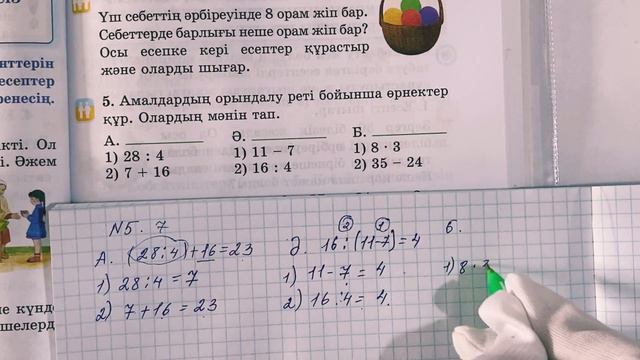 Үш себеттің әрбіреуінде 8 орам жіп бар.
Себеттерде барлығы неше орам жіп бар?
Осы есепке кері есептер құрастыр
және оларды шығар.
5. Амалдардың орындалу реті бойынша өрнектер
құр. Олардың мәнін тап.
А.
1) 28 : 4
2) 7 + 16
Ә.
1) 11 − 7
2) 16 : 4
Б.
1) 8 · 3
2) 35 − 24
нттерін
есептер
ренесің.
кті. Ол
і. Әжем
не күнд
шелерд
N5. 7
А. (28:4)+16=23
1) 28:4=7
2) 7+16=23
2 1
Ә. 16:(11-7)=4
1) 11-7=4
2) 16:4=4.
Б.
1) 8·3